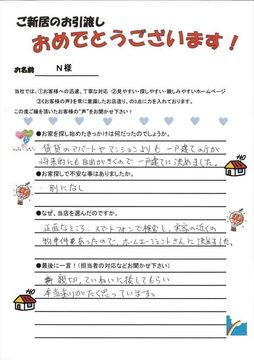 ご新居のお引渡し
おめでとうございます!
お名前 N様
当社では、①お客様への迅速、丁寧な対応 ②見やすい・探しやすい・親しみやすいホームページ
③《お客様の声》を常に意識したお店造り。の3点に力を入れております。
この度ご縁を頂いたお客様の"声"をお聞かせ下さい!
●お家を探し始めたきっかけは何だったのでしょうか。
賃貸のアパートやマンションよりも 一戸建ての方が
将来的にも自由がきくので一戸建てに決めました。
●お家探しで不安な事はありましたか。
別になし
●なぜ、当店を選んだのですか。
正直なところ、スマートフォンで検索し、実家の近くの
物件があったので、ホームエージェントさんに決めました。
●最後に一言!(担当者の対応などお聞かせ下さい)
親切、ていねいに接してもらい
本当ありがたく思っています。